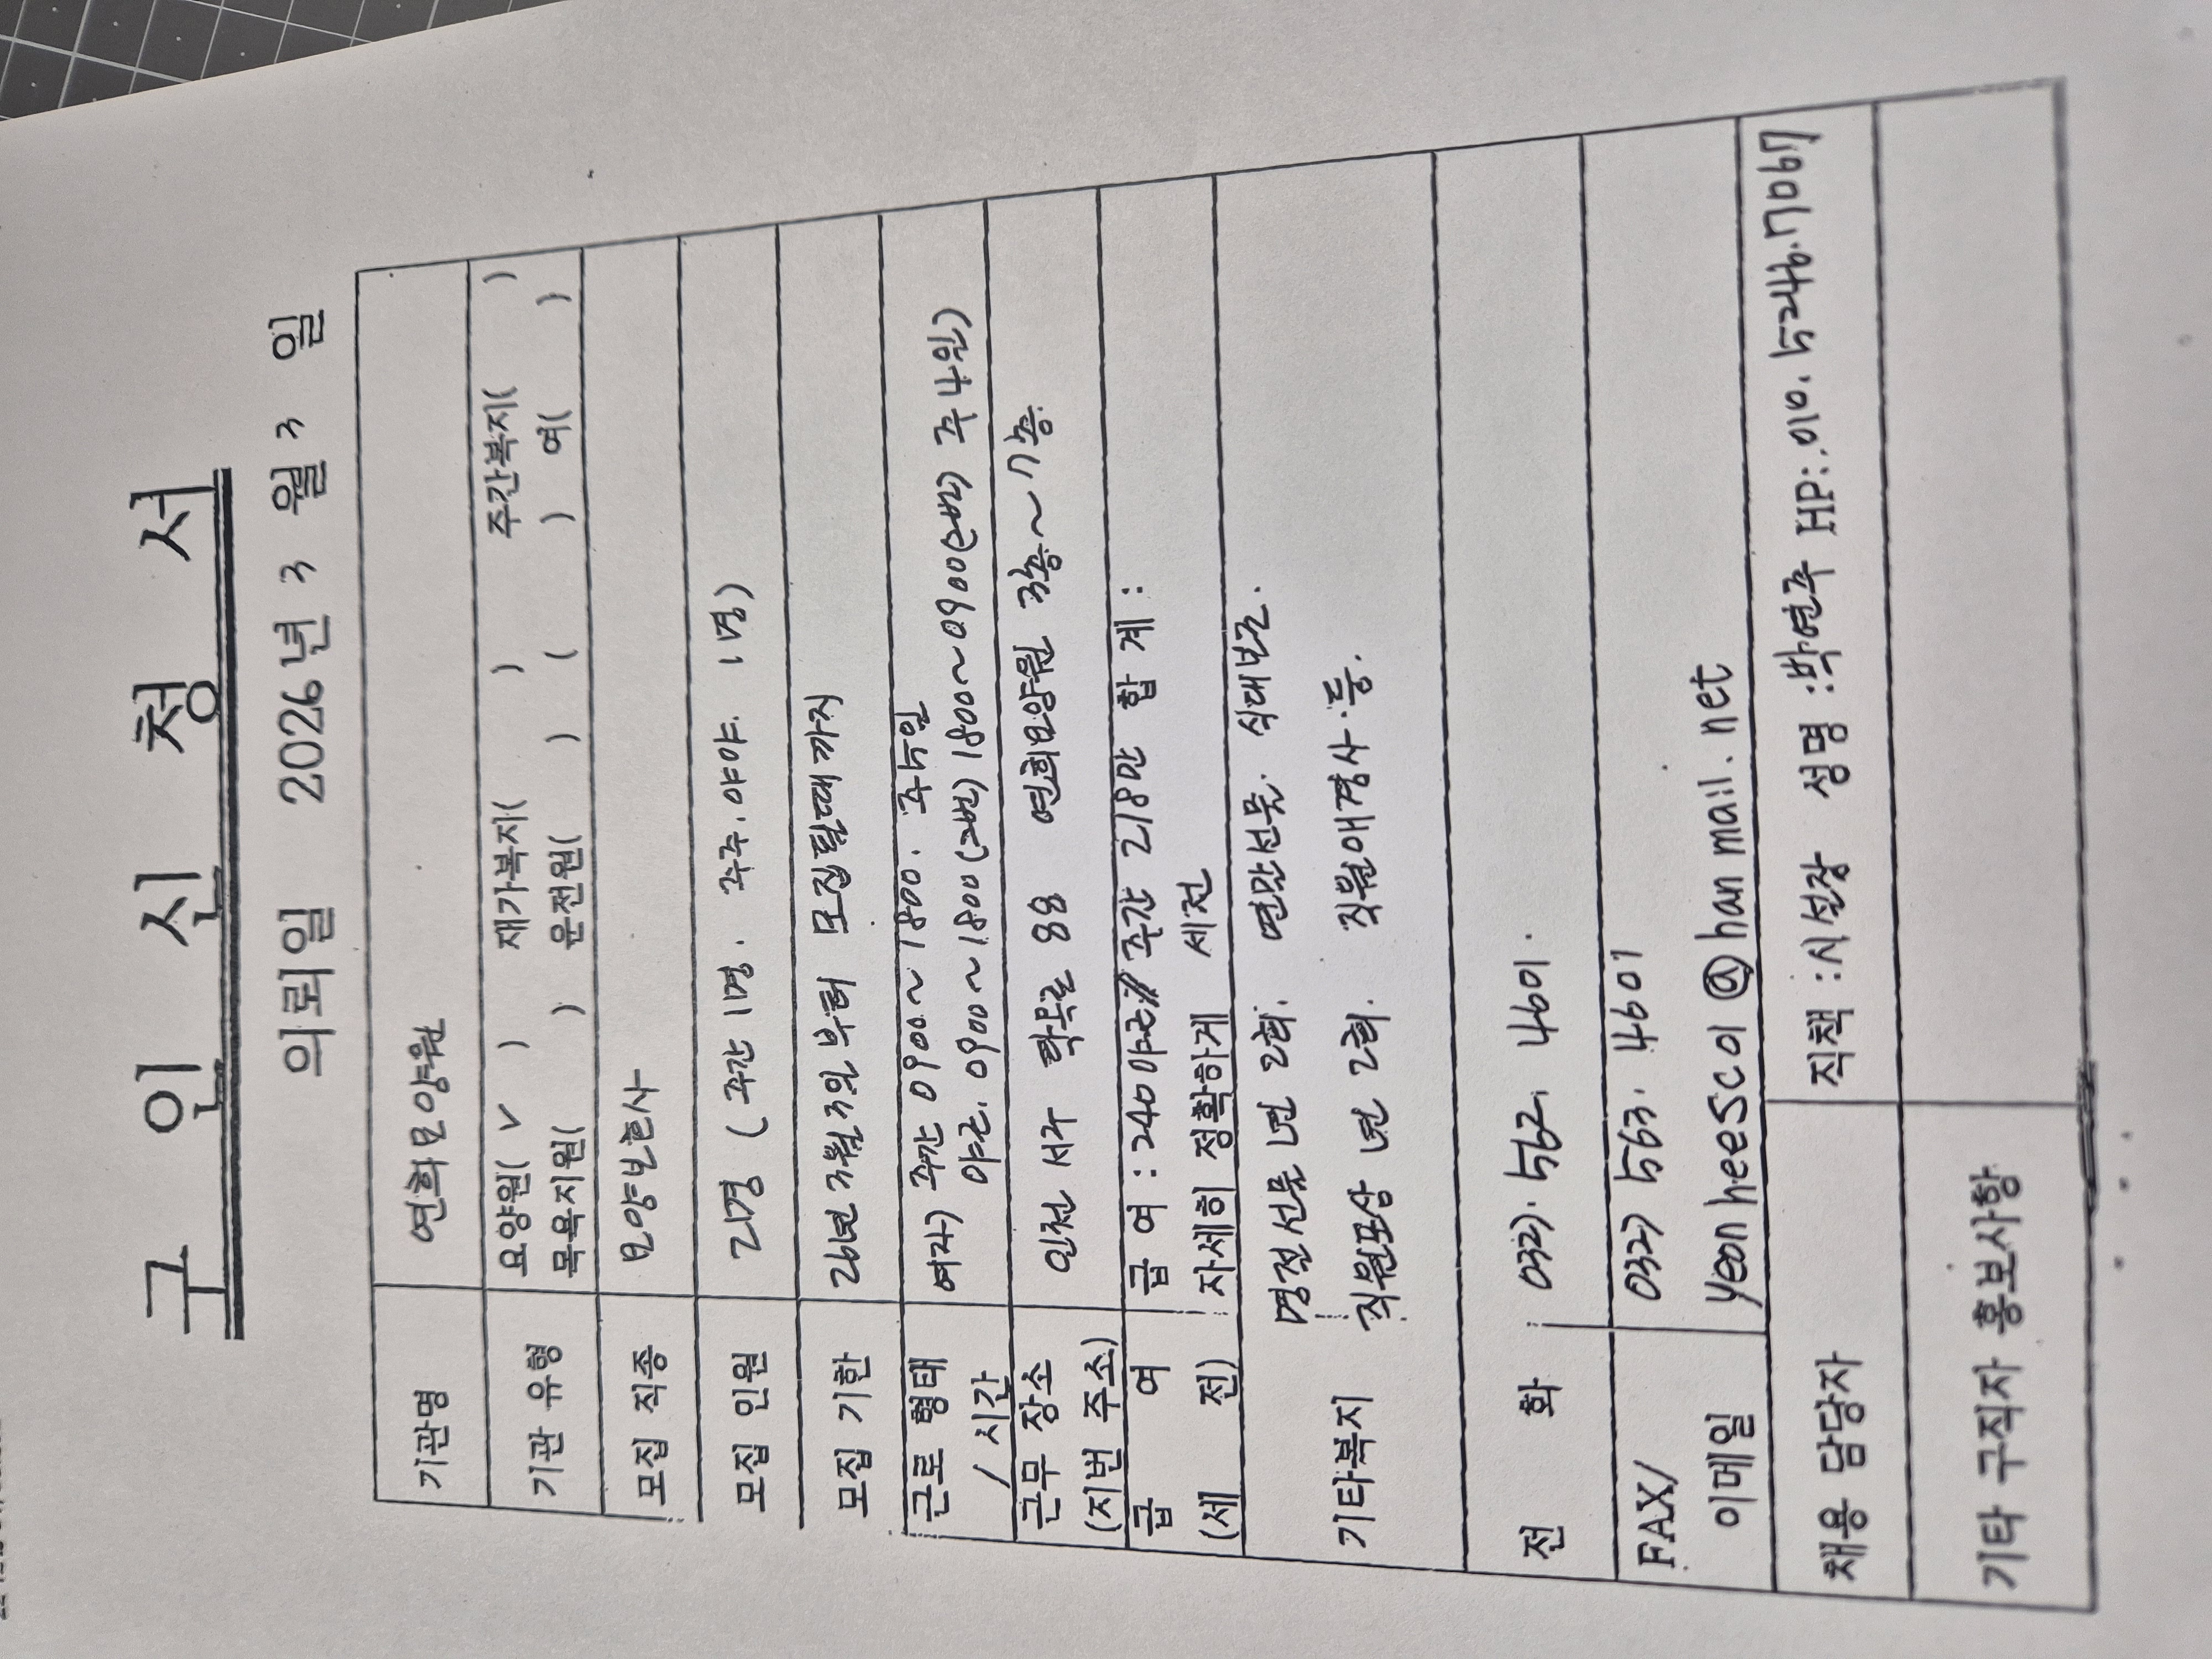 구 인 신 청 서
의뢰일 2026년 3 월 3 일
기관명 연희요양원
기관 유형 요양원( ✓ ) 재가복지( ) 주간복지( )
목욕지원( ) 운전원( ) ( ) 여( )
모집 직종 요양보호사
모집 인원 2명 (주간 1명. 주주.야야. 1명)
모집 기한 26년 3월 3일 부터 모집될때까지
근로 형태 여자) 주간 0900~1800. 주5일
/ 시간 야근. 0900~1800(2번) 1800~0900(2번) 주4일)
근무 장소 인천 서구 확목로 88 연희요양원 3층~7층
(지번 주소)
급 여 급 여 : 240야근// 주간 218만 합 계 :
(세 전) 자세히 정확하게 세전
기타복지 명절선물 년 2회. 연말선물. 식대보조.
직원포상 년 2회. 직원애경사.등.
전 화 032). 562. 4601.
FAX/ 032) 563. 4601
이메일 yeonheesc01@hanmail.net
채용 담당자 직책 :시설장 성명 :박연주 HP: 010. 5246.7067
기타 구직자 홍보사항